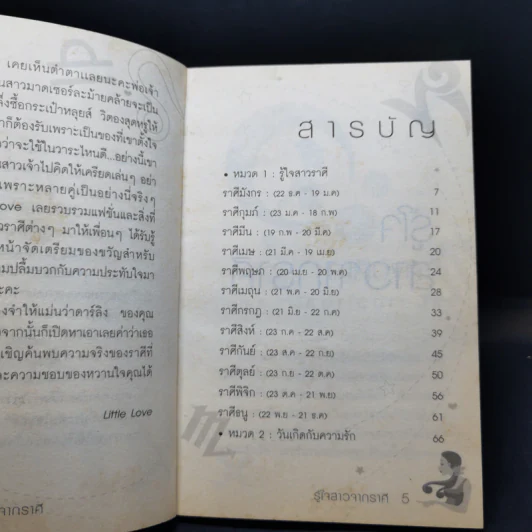 เคยเห็นดำตาแลยนะคะพ่อเจ้า
นสาวมาดเซอร์ละม้ายคล้ายจะเป็น
ซื้อกระเป๋าหลุยส์ วิตองสุดหรูให้
าก็ต้องรับเพราะเป็นของที่เขาตั้งใจ
ว่าจะใช้ในวาระไหนดี...อย่างนี้เขา
สาวเจ้าไปคิดให้เครียดเล่นๆ อย่า
เพราะหลายคู่เป็นอย่างนี้จริงๆ
ove เลยรวบรวมแฟชั่นและสิ่งที่
าวราศีต่างๆ มาให้เพื่อนๆ ได้รับรู้
หน้าจัดเตรียมของขวัญสำหรับ
มปลื้มบวกกับความประทับใจมา
ะคะ
งจำให้แม่นว่าดาร์ลิง ของคุณ
งจากนั้นก็เปิดหาเอาเลยค่าว่าเธอ
เชิญค้นพบความจริงของราศีที่
ละความชอบของหวานใจคุณได้
Little Love
าวจากราศี
สารบัญ
• หมวด 1 : รู้ใจสาวราศี
ราศีมังกร : (22 ธ.ค - 19 ม.ค) 7
ราศีกุมภ์ : (23 ม.ค - 18 ก.พ) 11
ราศีมีน : (19 ก.พ - 20 มี.ค) 17
ราศีเมษ : (21 มี.ค - 19 เม.ย) 20
ราศีพฤษภ : (20 เม.ย - 20 พ.ค) 24
ราศีเมถุน : (21 พ.ค - 20 มิ.ย) 28
ราศีกรกฎ : (21 มิ.ย - 22 ก.ค) 33
ราศีสิงห์ : (23 ก.ค - 22 ส.ค) 39
ราศีกันย์ : (23 ส.ค - 22 ก.ย) 45
ราศีตุลย์ : (23 ก.ย - 22 ต.ค) 50
ราศีพิจิก : (23 ต.ค - 21 พ.ย) 56
ราศีธนู : (22 พ.ย - 21 ธ.ค) 61
• หมวด 2 : วันเกิดกับความรัก 66
รู้ใจสาวจากราศี 5